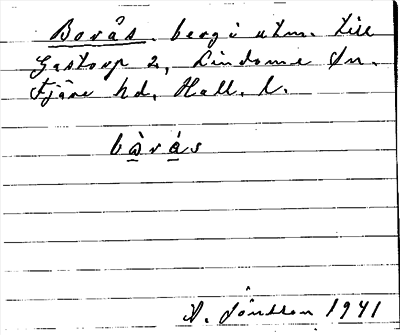 Borås. berg i utm. till
Gastorp 2, Lindome sn.
Fjäre hd, Hall. l.
bàrás
A. Jönsson 1941